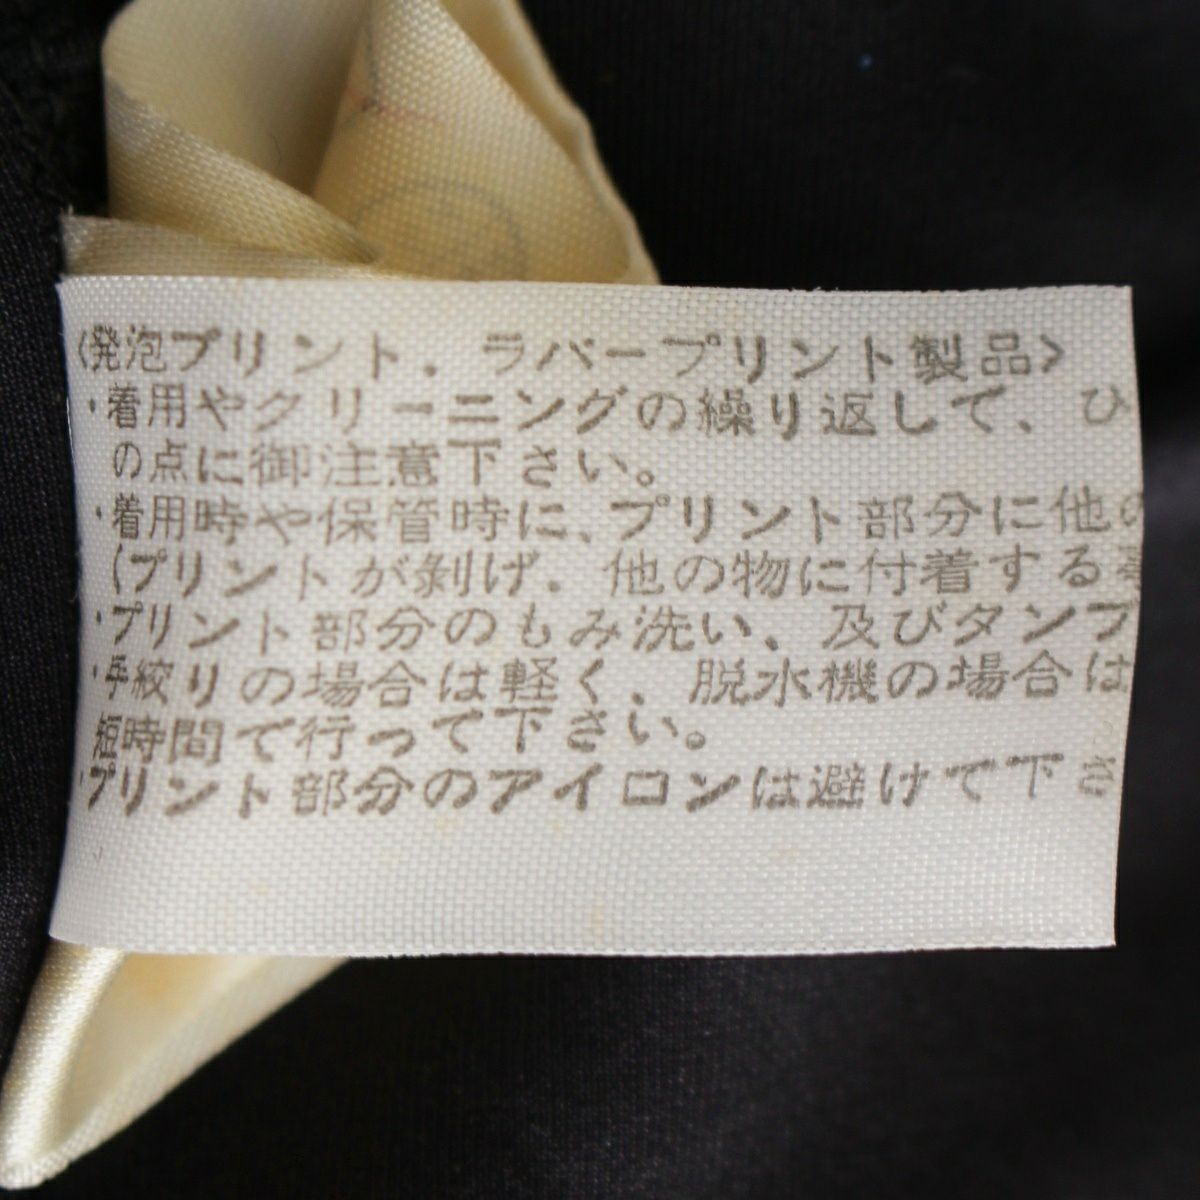 〈発泡プリント．ラバープリント製品〉
・着用やクリーニングの繰り返して、ひ
の点に御注意下さい。
・着用時や保管時に、プリント部分に他の
(プリントが剥げ．他の物に付着する
・プリント部分のもみ洗い、及びタンブ
・手絞りの場合は軽く、脱水機の場合は
短時間で行って下さい。
・プリント部分のアイロンは避けて下さ